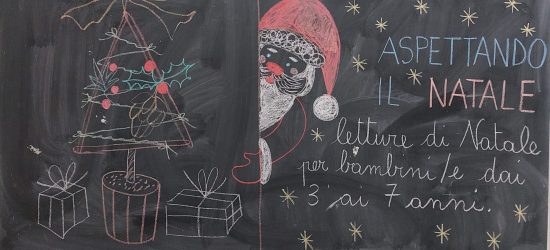 ASPETTANDO
IL NATALE
letture di Natale
per bambini/e dai
3 ai 7 anni.